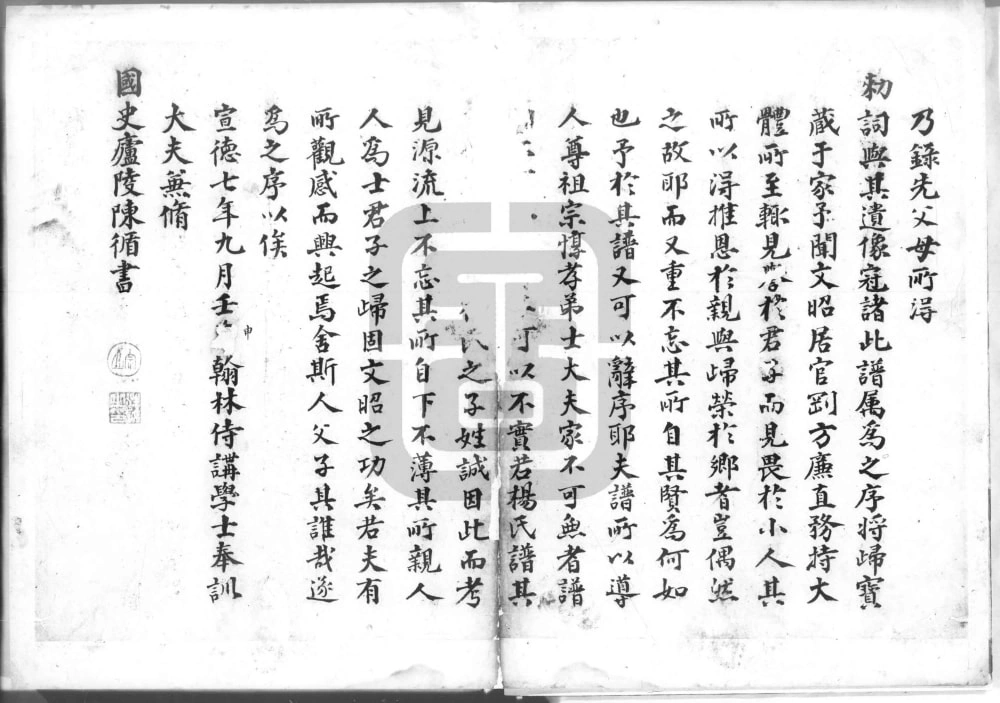 乃錄先父母所得
勑詞與其遺像冠諸此譜属為之序将歸寶
蔵于家予聞文昭居官剛方廉直務持大
體所至輒見於君子而見畏於小人其
所以得推恩於親與歸榮於鄉者豈偶然
之故耶而又重不忘其所自其賢為何如
也予於其譜又可以辭序耶夫譜所以導
人尊祖宗惇孝弟士大夫家不可無者譜
可以不實若楊氏譜其
氏之子姓誠因此而考
見源流上不忘其所自下不薄其所親人
人為士君子之歸固文昭之功矣若夫有
所觀感而興起焉舍斯人父子其誰哉遂
為之序以俟
宣徳七年九月壬申翰林侍講學士奉訓
大夫兼脩
國史廬陵陳循書